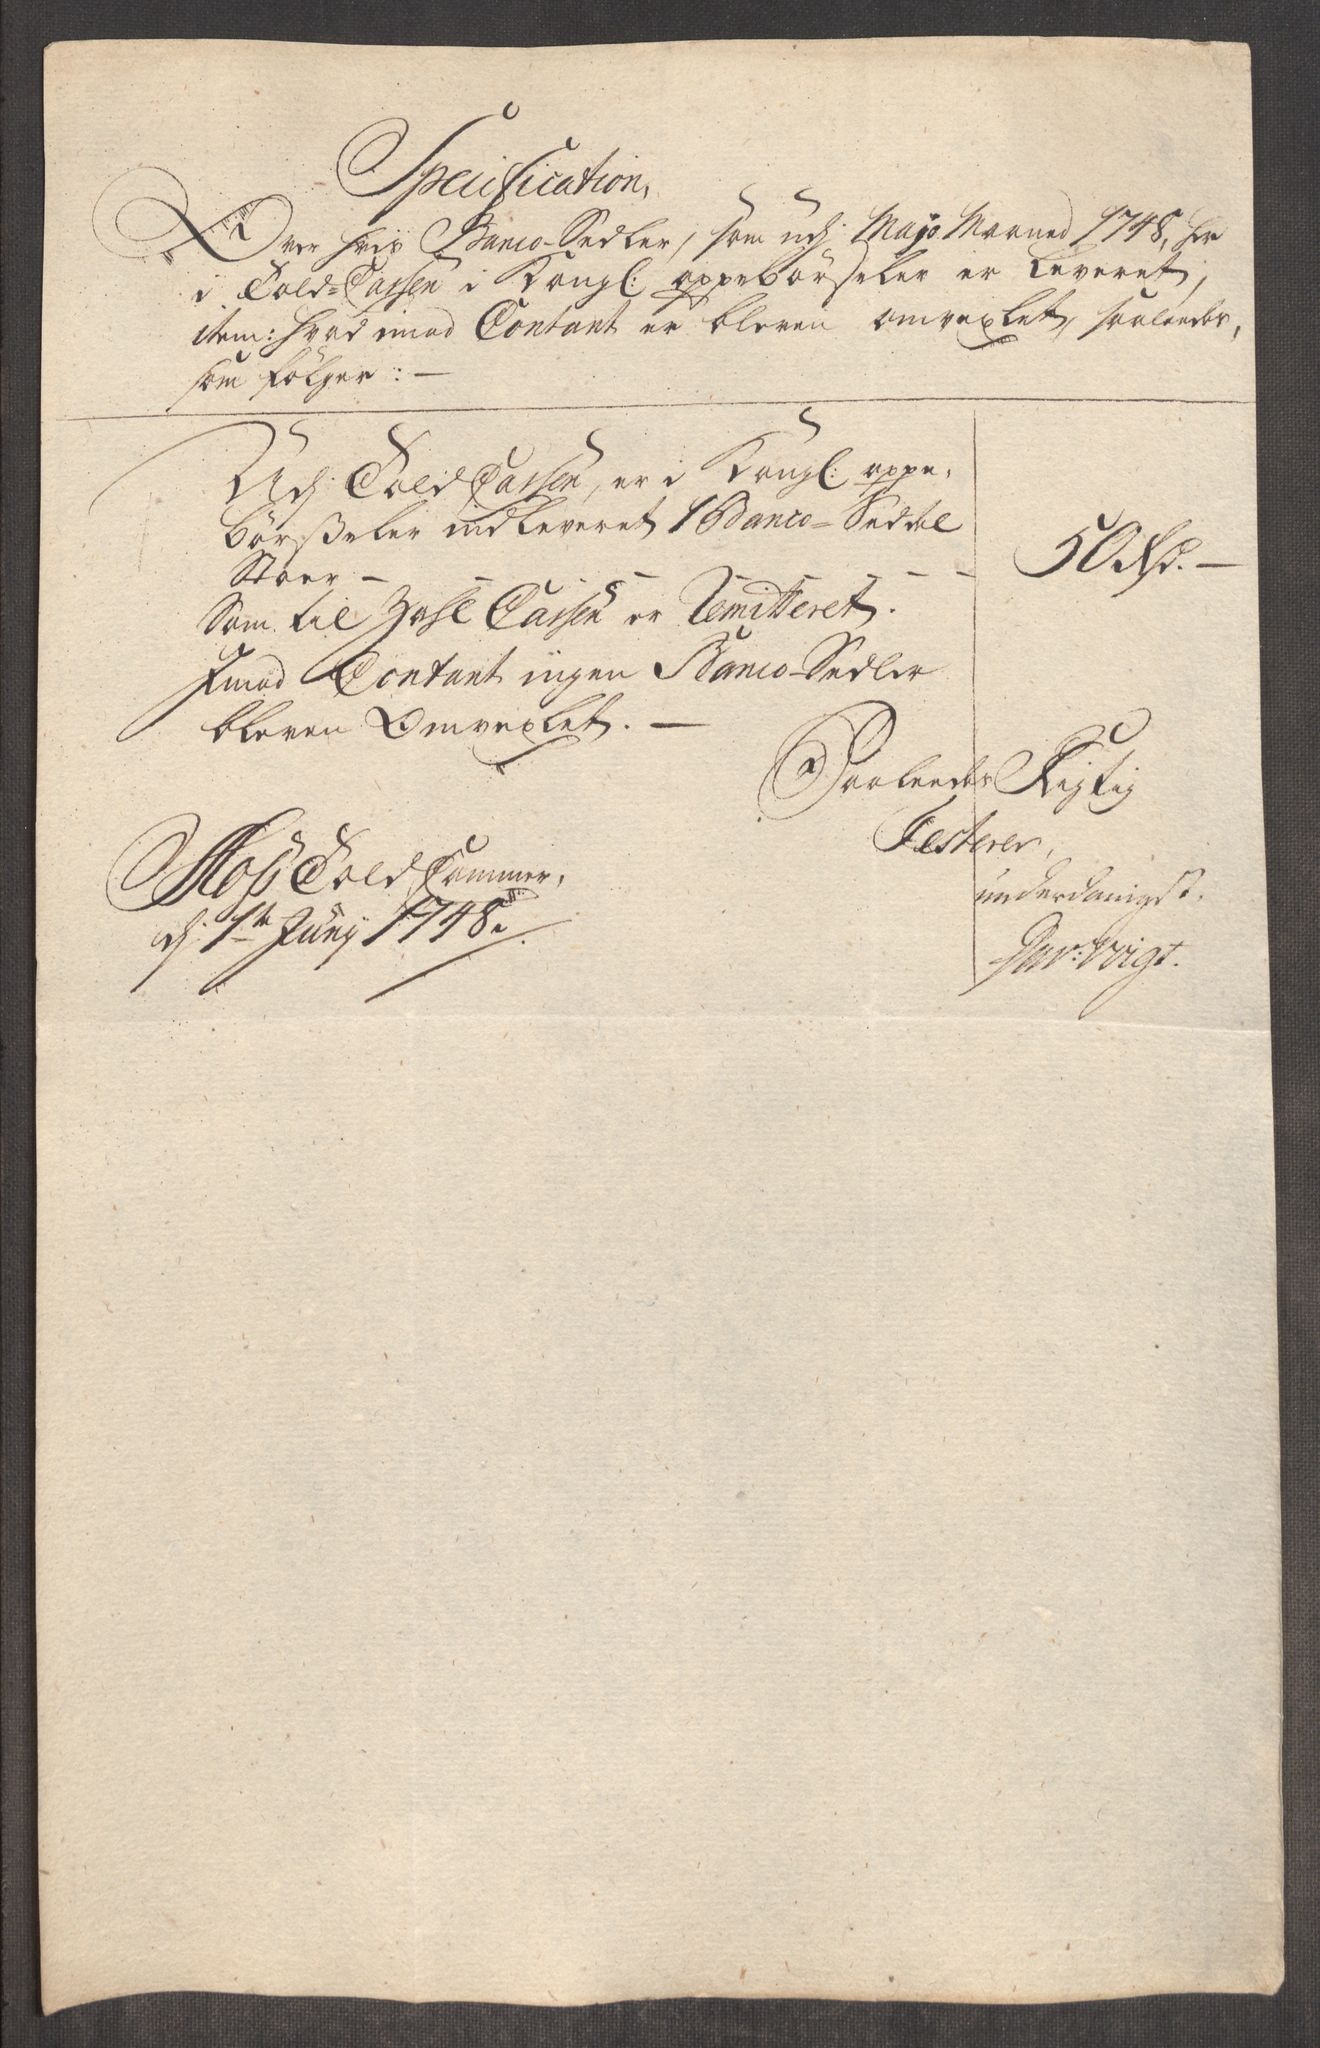 Specification,
Over hvis Banco-Sedler, som udj Majo Maaned 1748, her
i Told-Cassen i Kongl: oppebörseler er Leveret,
item: hvad imod Contant er bleven omvexlet, saaledes,
som følger: —
Udj Told Cassen, er i Kongl: oppe-
börßeler indleveret 1 Banco-Seddel
Stoer — 50 Rd. —
Som til Zahl Cassen er Remitteret.
Imod Contant ingen Banco-Sedler
bleven Omvexlet. —
Saaledes Rigtig
Testerer,
underdanigst.
Moss Told Cammer,
d: 1te Junij 1748.
Voigt.